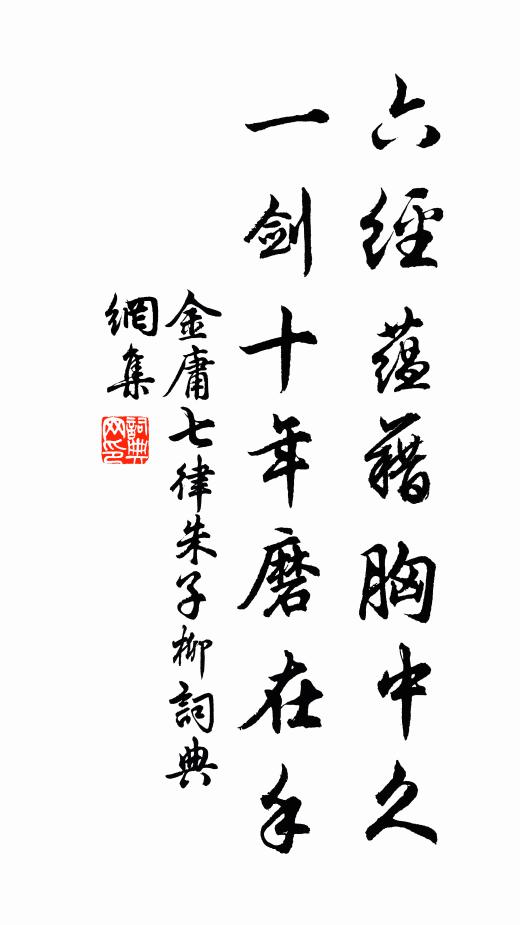 六經蘊藉胸中久
一劍十年磨在手
金庸七律朱子柳詞典
網集
詞典
网印